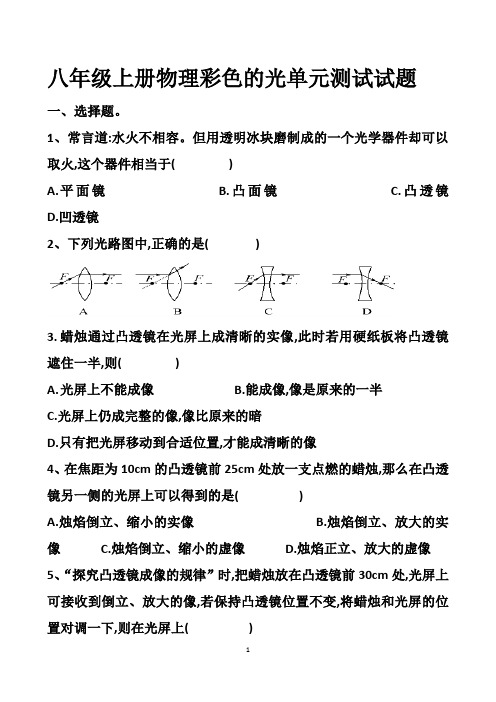 八年级上册物理彩色的光单元测试试题
一、选择题。
1、常言道:水火不相容。但用透明冰块磨制成的一个光学器件却可以
取火,这个器件相当于( )
A.平面镜 B.凸面镜 C.凸透镜
D.凹透镜
2、下列光路图中,正确的是( )
F F F F F F F F
A B C D
3.蜡烛通过凸透镜在光屏上成清晰的实像,此时若用硬纸板将凸透镜
遮住一半,则( )
A.光屏上不能成像 B.能成像,像是原来的一半
C.光屏上仍成完整的像,像比原来的暗
D.只有把光屏移动到合适位置,才能成清晰的像
4、在焦距为10cm的凸透镜前25cm处放一支点燃的蜡烛,那么在凸透
镜另一侧的光屏上可以得到的是( )
A.烛焰倒立、缩小的实像 B.烛焰倒立、放大的实
像 C.烛焰倒立、缩小的虚像 D.烛焰正立、放大的虚像
5、“探究凸透镜成像的规律”时,把蜡烛放在凸透镜前30cm处,光屏上
可接收到倒立、放大的像,若保持凸透镜位置不变,将蜡烛和光屏的位
置对调一下,则在光屏上( )
1